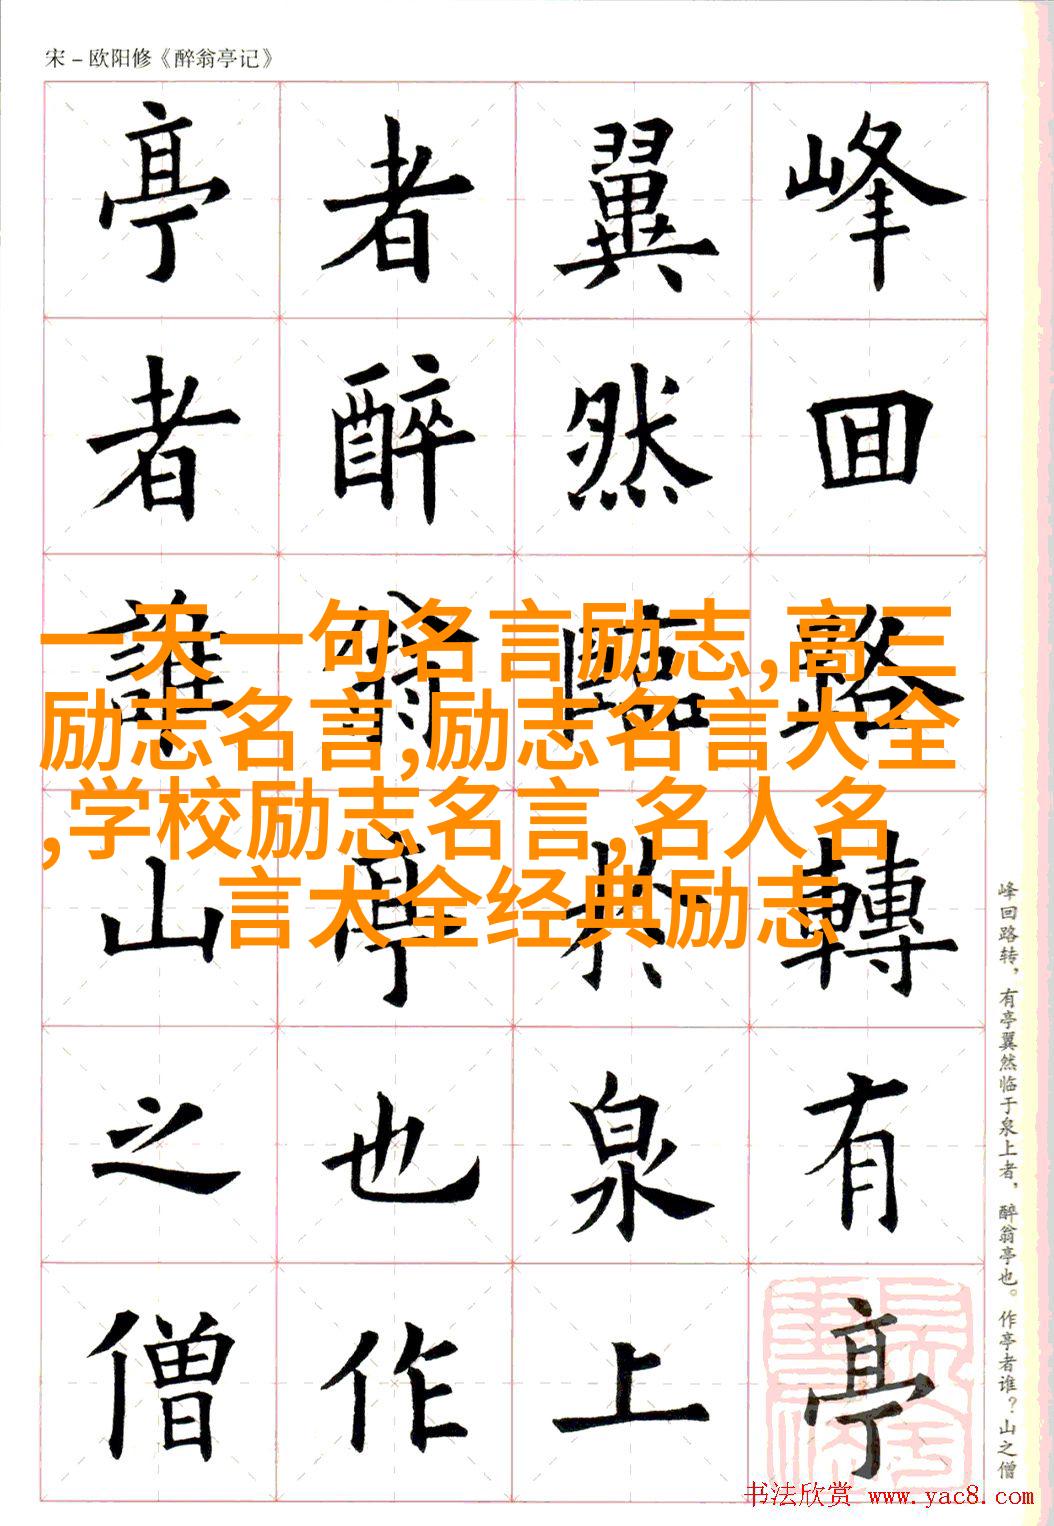 宋－欧阳修《醉翁亭记》
峰回路轉有亭
翼然臨於泉上
者醉翁亭也作
亭者誰山之僧
一天一句名言励志,高三
励志名言,励志名言大全
,学校励志名言,名人名
言大全经典励志
峰回路转，有亭翼然临于泉上者，醉翁亭也。作亭者谁？山之僧
书法欣赏 www.yac8.com